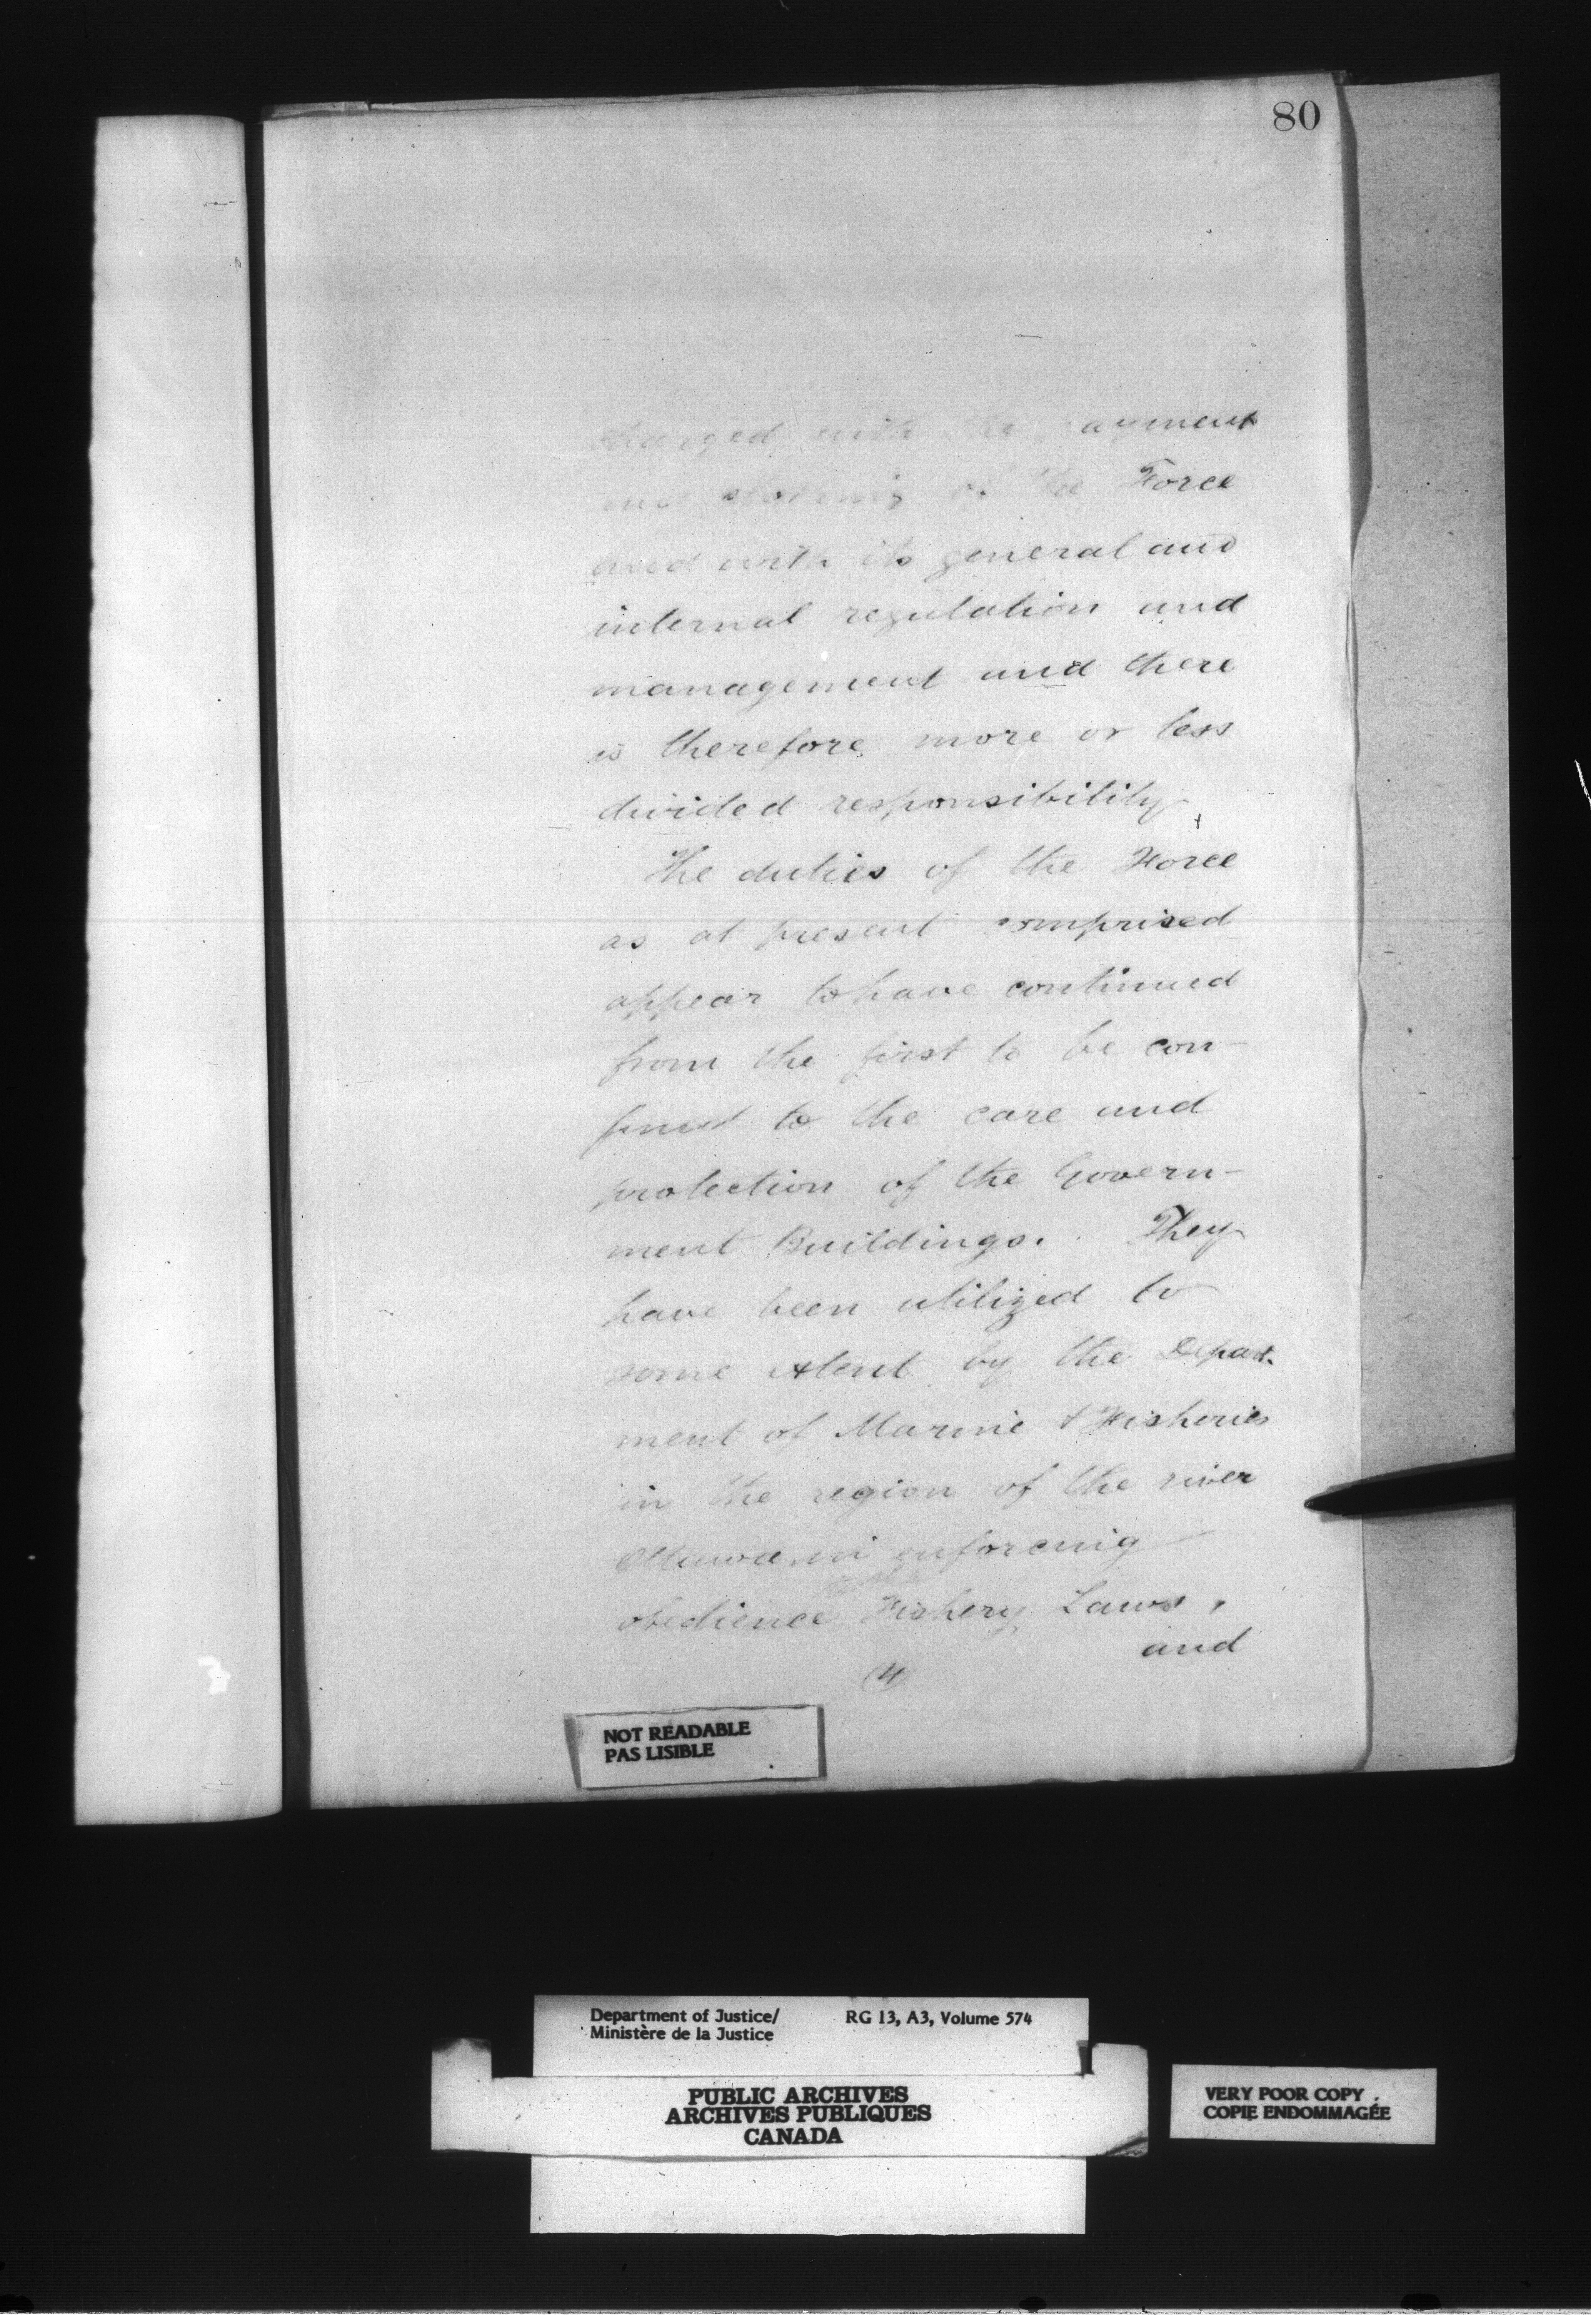 80
charged with the payment
and clothing of the Force
and with its general and
internal regulation and
management and there
is therefore more or less
divided responsibility
The duties of the Force
as at present comprised
appear to have continued
from the first to be con-
fined to the care and
protection of the Govern-
ment Buildings. They
have been utilized to
some extent by the Depart-
ment of Marine & Fisheries
in the region of the river
Ottawa in enforcing
obedience Fishery Laws,
and
(4)
NOT READABLE
PAS LISIBLE
Department of Justice/ RG 13, A3, Volume 574
Ministère de la Justice
PUBLIC ARCHIVES
ARCHIVES PUBLIQUES
CANADA
VERY POOR COPY
COPIE ENDOMMAGÉE